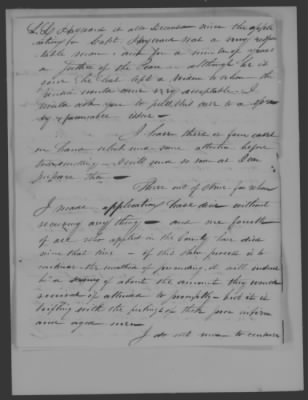 L. D. Hayward is also Deceased since the application
for Capt. Hayward was a very respectable
man - and for a number of years
a Justice of the Peace - although he is
gone he has left a widow to whom the
would be very acceptable. I
would ask you to put this over to a
by favourable
I have three or four cases
on hand which need some attention before
I will send as soon as I can
prepare them -
Three out of nine for whom
I made applications have died without
receiving any thing - and one fourth
of all who applied in the County have died
since that time - if this slow process is to
continue the method of proceeding it will reduce
the about the amount they would
received if attended to promptly - but it is
trifling with the feelings of these poor infirm
and aged men
I do not mean to censure